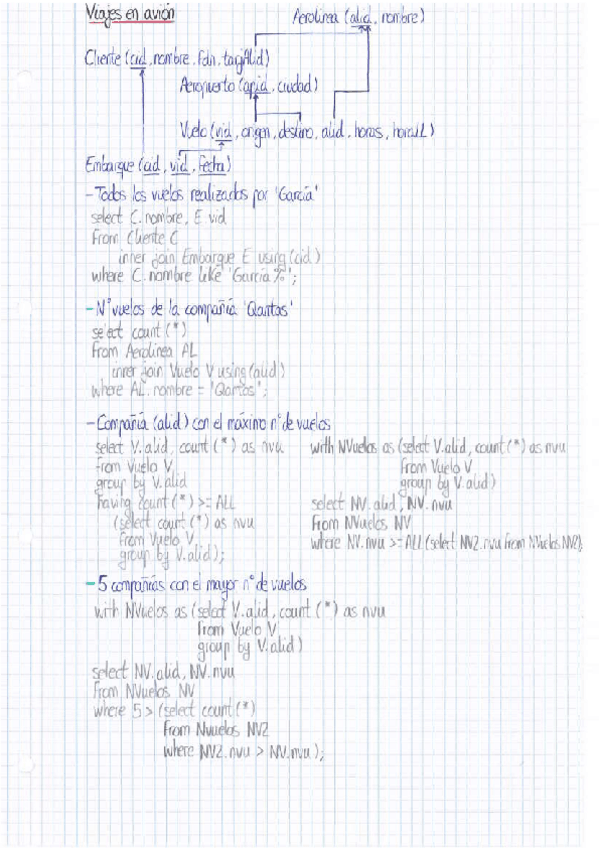 Viajes en avión
Aerolínea (alid, nombre)
Cliente (cid, nombre, fdn, tarjAlid)
Aeropuerto (apid, ciudad)
Vuelo (vid, origen, destino, alid, horas, horaLL)
Embarque (cid, vid, fecha)
- Todos los vuelos realizados por 'García'
select C.nombre, E.vid
From Cliente C
inner join Embarque E using (cid)
where C.nombre like 'García%';
- Nº vuelos de la compañía 'Qantas'
select count(*)
From Aerolinea AL
inner join Vuelo V using (alid)
where AL.nombre = 'Qantas';
- Compañía (alid) con el máximo nº de vuelos
select V.alid, count(*) as nvu
from Vuelo V
group by V.alid
having count(*) >= ALL
(select count(*) as nvu
from Vuelo V
group by V.alid);
with NVuelos as (select V.alid, count(*) as nvu
from Vuelo V
group by V.alid)
select NV.alid, NV.nvu
From NVuelos NV
where NV.nvu >= ALL (select NV2.nvu from NVuelos NV2);
- 5 compañías con el mayor nº de vuelos
with NVuelos as (select V.alid, count(*) as nvu
from Vuelo V
group by V.alid)
select NV.alid, NV.nvu
From NVuelos NV
where 5 > (select count(*)
From Nvuelos NV2
where NV2.nvu > NV.nvu);